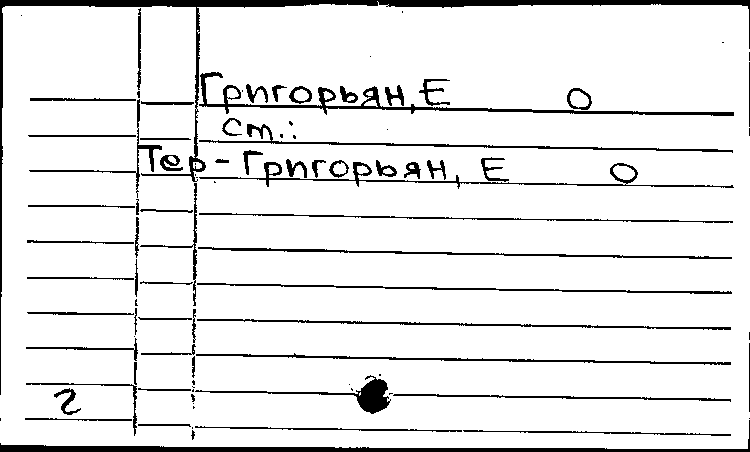 Григорьян, Е О
ст.:
Тер-Григорьян, Е О
2